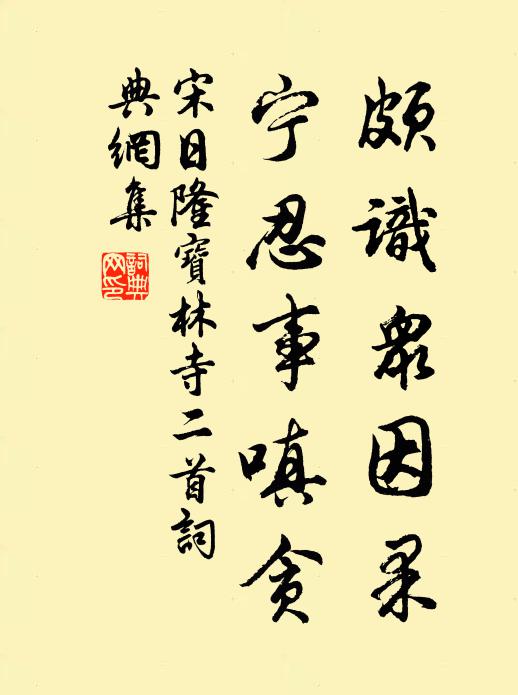 頗識衆因果
宁忍事嗔貪
宋日隆寶林寺二首詞
典網集
詞典网印